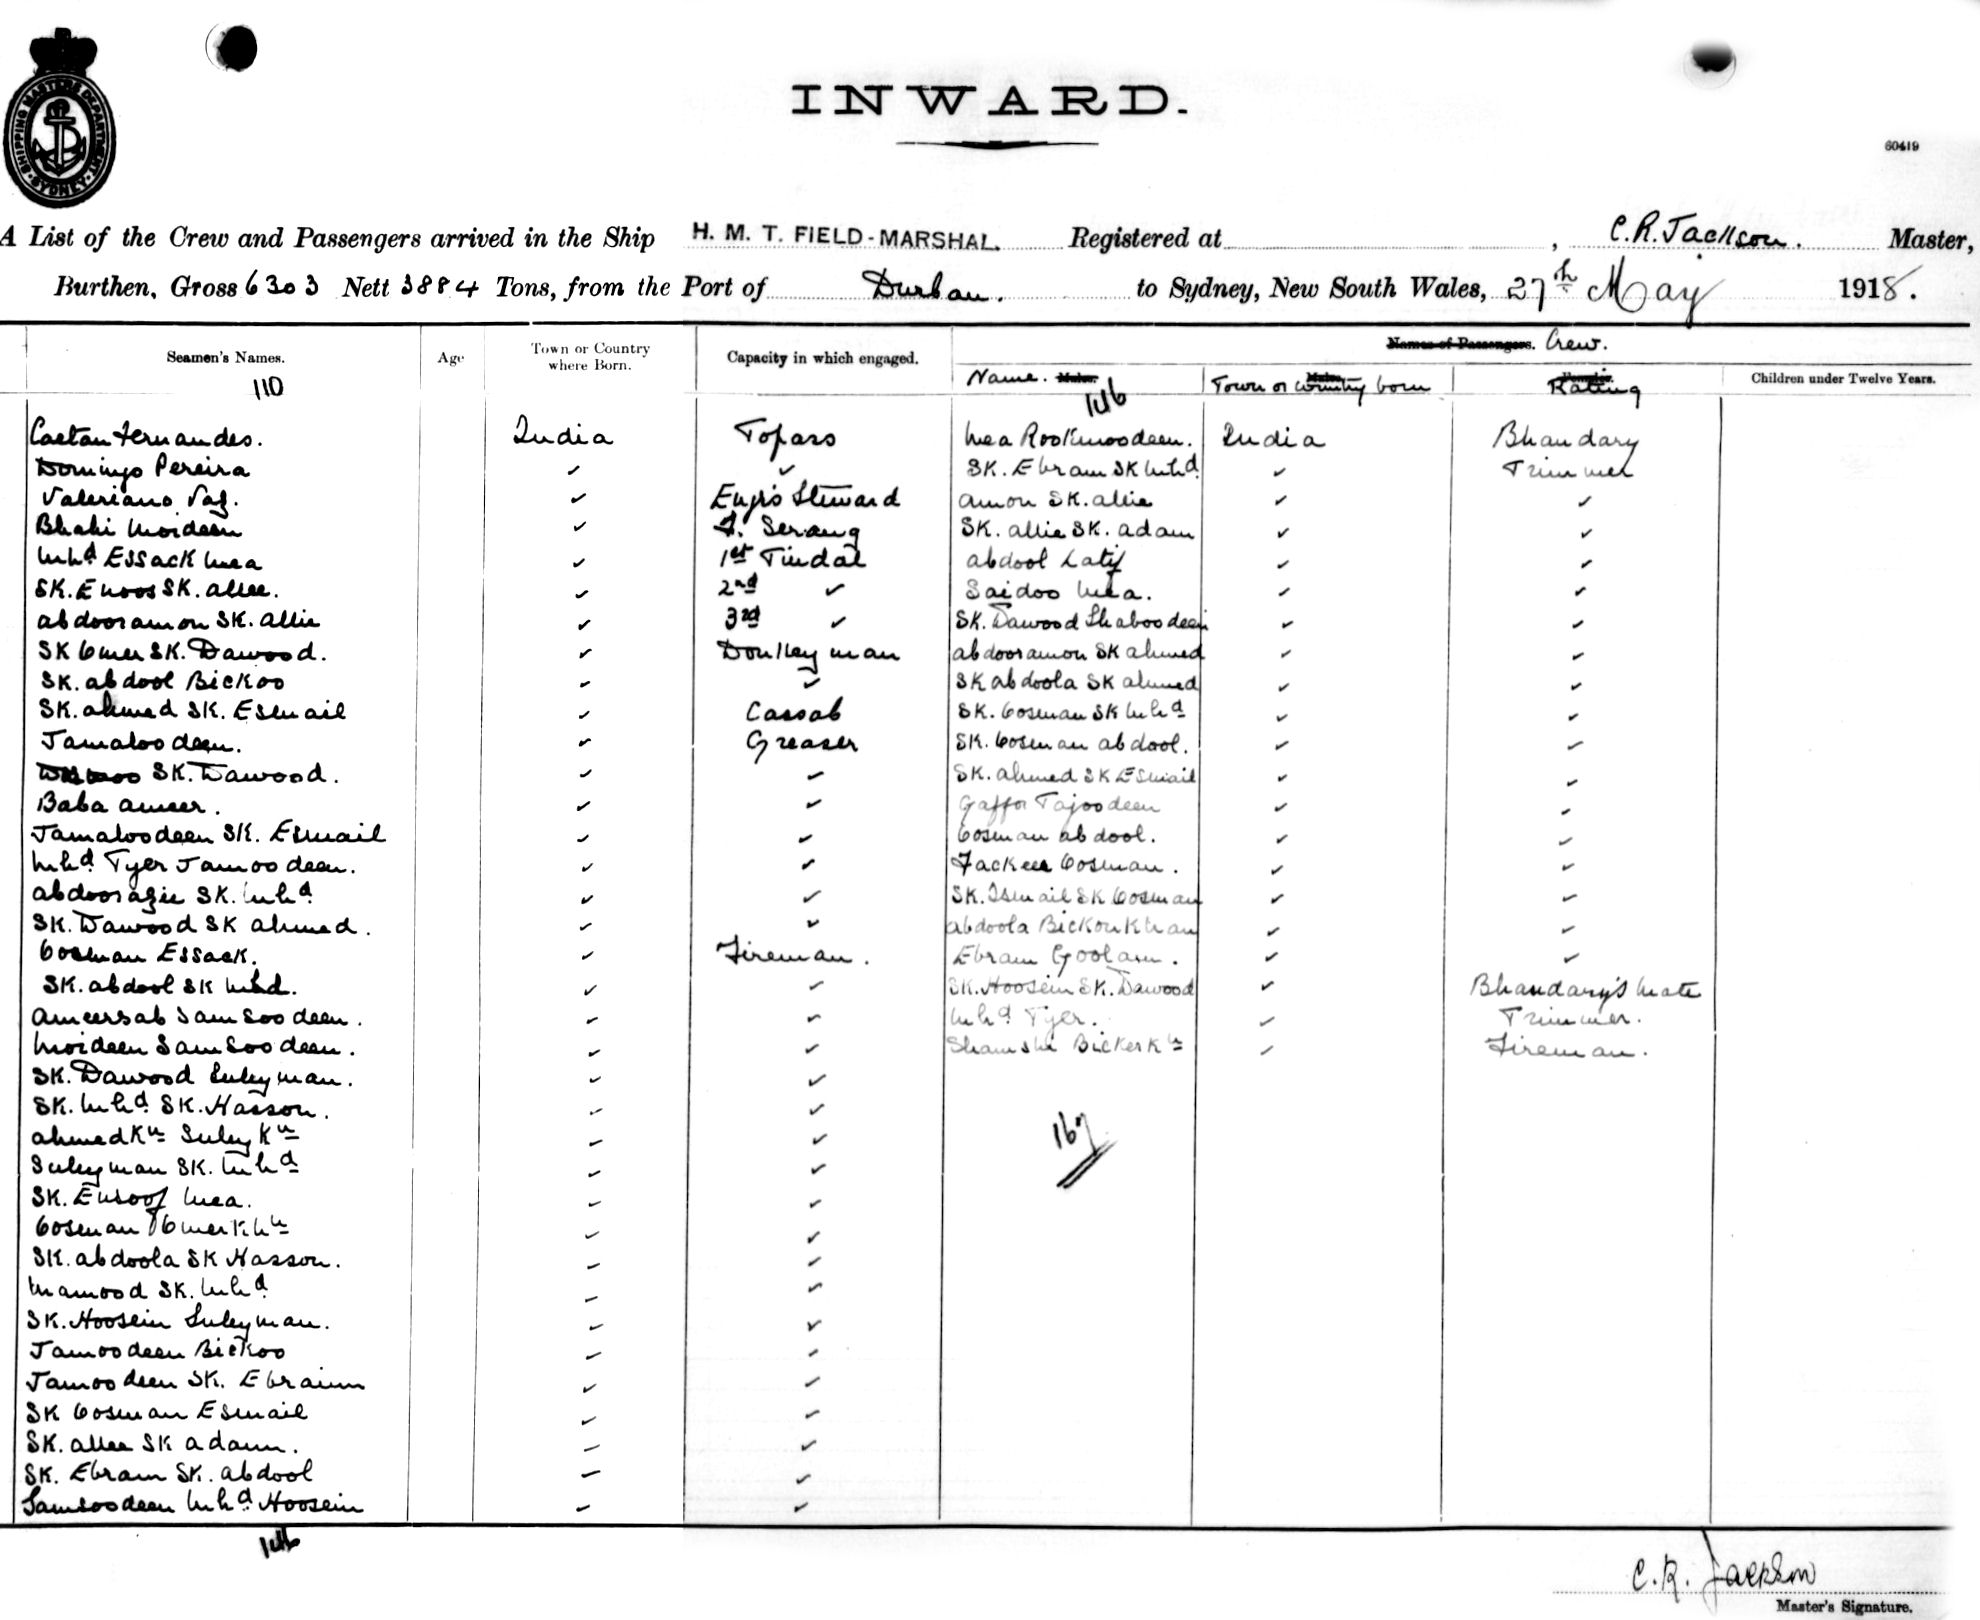 SHIPPING MASTERS DEPARTMENT
SYDNEY
INWARD.
60419
A List of the Crew and Passengers arrived in the Ship H. M. T. FIELD-MARSHAL. Registered at , C.R. Jackson. Master,
Burthen, Gross 6303 Nett 3884 Tons, from the Port of Durban. to Sydney, New South Wales, 27th May 1918.
Seamen's Names. Age Town or Country where Born. Capacity in which engaged. Names of Passengers. Crew.
110 Name. Males. 146 Town or Country born Rating Children under Twelve Years.
Caetan Fernandes. India Topass Mea Rookmoodeen. India Bhandary
Domingo Pereira ✓ ✓ SK. Ebram SK Mhd ✓ Trimmer
Valeriano Vaz. ✓ Engrs Steward Amon SK. Allie ✓ ✓
Bhahi Moideen ✓ F. Serang SK. Allie SK. Adam ✓ ✓
Mhd Essack Mea ✓ 1st Tindal Abdool Latif ✓ ✓
SK. Enoos SK. Allee. ✓ 2nd ✓ Saidoo Mea. ✓ ✓
Abdooramon SK. Allie ✓ 3rd ✓ SK. Dawood Shaboodeen ✓ ✓
SK Omer SK. Dawood. ✓ Donkeyman Abdooramon SK Ahmed ✓ ✓
SK. Abdool Bickoo ✓ ✓ SK Abdoola SK Ahmed ✓ ✓
SK. Ahmed SK. Esmail ✓ Cassab SK. Oosman SK Mhd ✓ ✓
Jamaloodeen. ✓ Greaser SK. Oosman Abdool. ✓ ✓
SK. Dawood. ✓ ✓ SK. Ahmed SK Esmail ✓ ✓
Baba Ameer. ✓ ✓ Gaffor Tajoodeen ✓ ✓
Jamaloodeen SK. Esmail ✓ ✓ Oosman Abdool. ✓ ✓
Mhd Tyer Jamoodeen. ✓ ✓ Fackee Oosman. ✓ ✓
Abdoorazie SK. Mhd ✓ ✓ SK. Ismail SK Oosman ✓ ✓
SK. Dawood SK Ahmed. ✓ ✓ Abdoola Bickonkhan ✓ ✓
Oosman Essack. ✓ Fireman. Ebram Goolam. ✓ ✓
SK. Abdool SK Mhd. ✓ ✓ SK. Hoosein SK. Dawood ✓ Bhandary's Mate
Ameersab Samsoodeen. ✓ ✓ Mhd Tyer. ✓ Trimmer.
Moideen Samsoodeen. ✓ ✓ Shamshi Bicker Kn ✓ Fireman.
SK. Dawood Suleyman. ✓ ✓
SK. Mhd SK. Hasson. ✓ ✓
Ahmed Kn Suley Kn ✓ ✓ 167
Suleyman SK. Mhd ✓ ✓
SK. Eusoof Mea. ✓ ✓
Oosman Omer Khn ✓ ✓
SK. Abdoola SK Hasson. ✓ ✓
Mamood SK. Mhd ✓ ✓
SK. Hoosein Suleyman. ✓ ✓
Jamoodeen Bickoo ✓ ✓
Jamoodeen SK. Ebraim ✓ ✓
SK Oosman Esmail ✓ ✓
SK. Allee SK Adam. ✓ ✓
SK. Ebram SK. Abdool ✓ ✓
Samsoodeen Mhd Hoosein ✓ ✓
146
C. R. Jackson
Master's Signature.